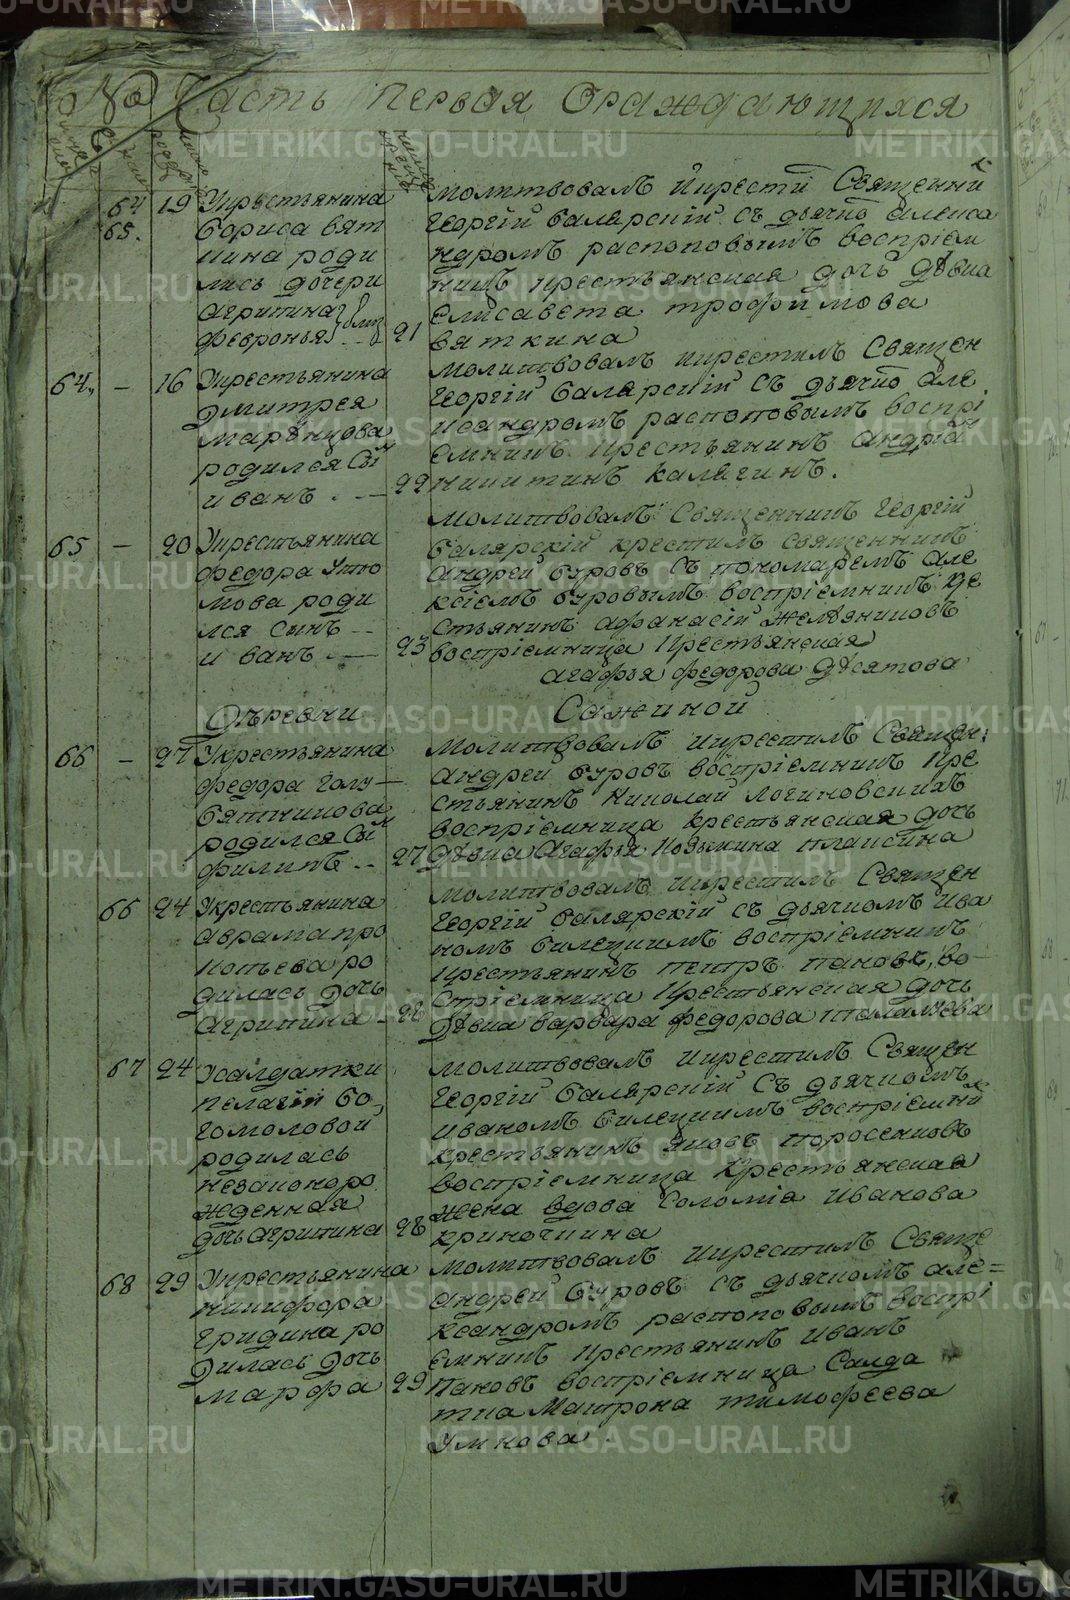 № Часть первая Ораждающихся
64 19 Укрестьянина
65. Бориса вят
кина роди
лись дочери
Агрипина
Февронья } близ 21
молитвовалъ йкрестй Священник
Георгій Балярскій съ дьячко алекса
ндромъ распоповымъ воспріем
никъ крестьянская дочь дѣвка
Елисавета трофимова
вяткина
64. — 16 Укрестьянина
Дмитрея
марѣнцова
родился Сын
иванъ . — 22
молитвовалъ икрестилъ Священ
Георгій Балярскій съ дьячко але
ксандромъ распоповымъ воспрі
емникъ крестьянинъ андріан
никитинъ калягинъ.
65 — 20 Укрестьянина
федора Утю
мова роди
лся сынъ --
иванъ . — 23
молитвовалъ Священникъ Георгій
Балярскій крестилъ священникъ
Андрей Буровъ съ пономаремъ але
ксіемъ Буровымъ воспріемникъ кре
стьянинъ афанасій желѣзниковъ
воспріемница крестьянская
агафья федорова дѣсятова
Дѣревни Сажиной
66 — 27 Укрестьянина
федора Голу—
бятникова
родился Сын
филипъ -- 27
молитвовалъ икрестилъ Священ:
андрей Буровъ воспріемникъ кре
стьянинъ Николай логиновскихъ
воспріемница крестьянская дочь
дѣвка Агафья Козьмина плаксина
66 24 Укрестьянина
Аврама про
копьева ро
дилась дочь
Агрипина - 26
молитвовалъ икрестилъ Священ
Георгій Балярскій съ дьячкомъ ива
номъ билецкимъ воспріемникъ
крестьянинъ петръ пановъ, во—
спріемница крестьянская дочь
дѣвка варвара федорова
67 24 Усалдатки
пелагіи Бо
гомоловой
родилась
незаконоро
жденная
дочь агрипина 28
молитвовалъ икрестилъ Священ
Георгій Балярскій Съ дьячкомъ
иваномъ билецкимъ воспріемник
крестьянинъ яковъ поросенковъ
воспріемница крестьянская
жена вдова Соломіа иванова
криночкина
68 29 Укрестьянина
никифора
Гридина ро
дилась дочь
марфа 29
молитвовалъ икрестилъ Свяще
андрей Буровъ съ дьячкомъ але=
ксандромъ распоповымъ воспрі
емникъ крестьянинъ иванъ
пановъ воспріемница Салда
тка Матрона тимофеева
Умнова .
METRIKI.GASO-URAL.RU